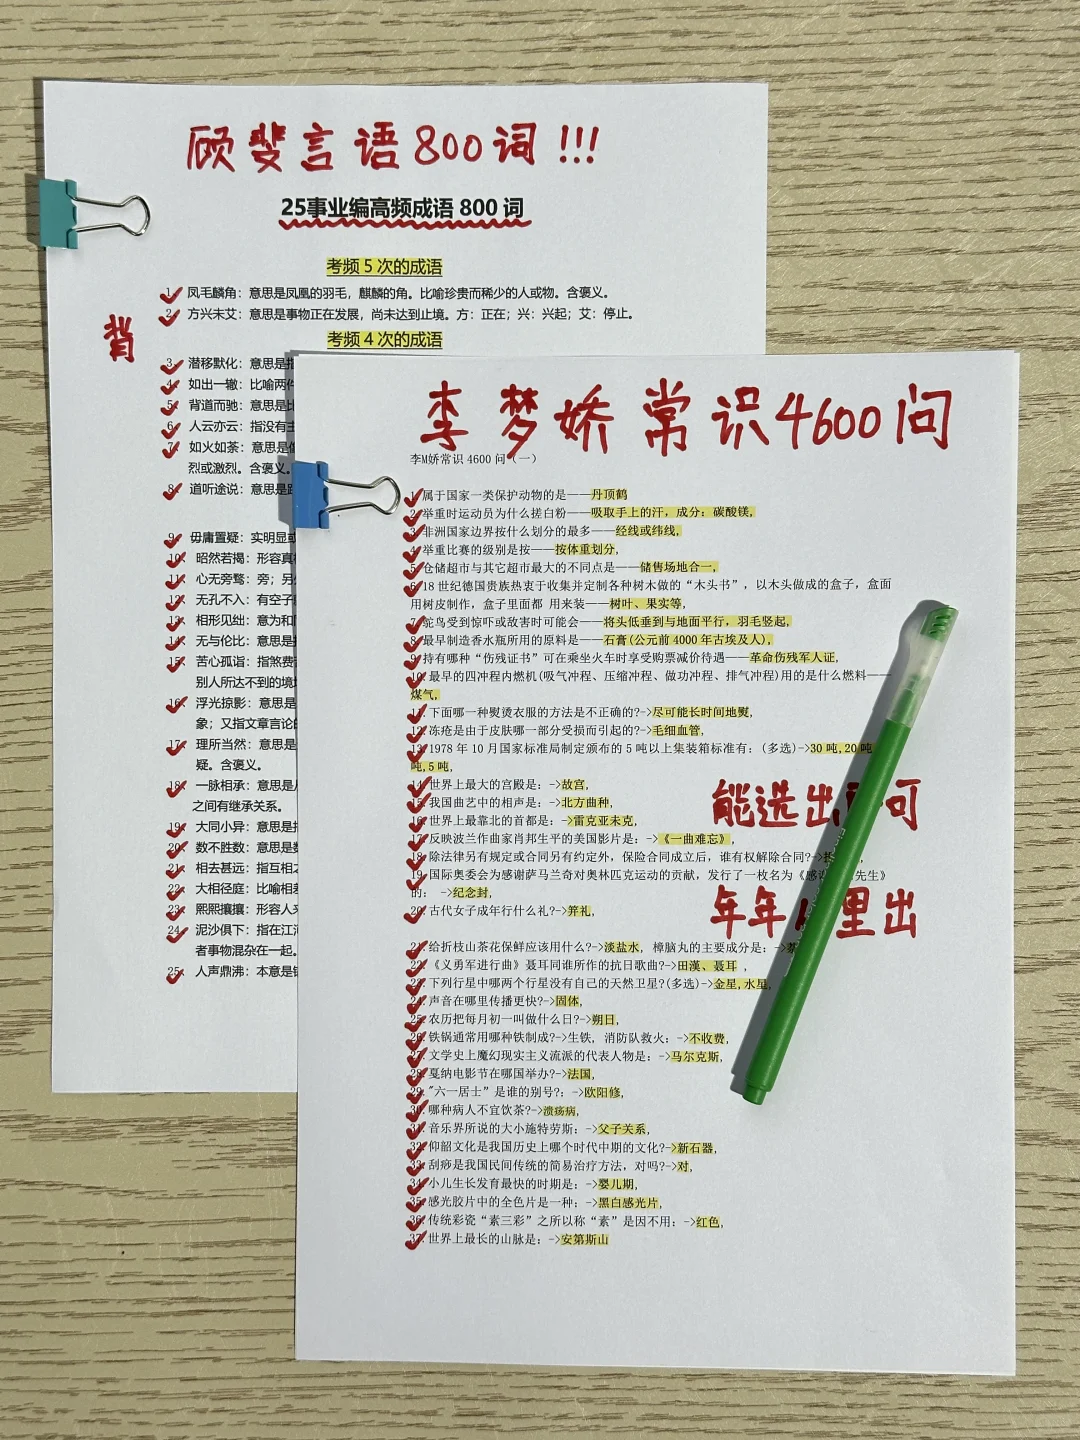 顾斐言语800词!!!
25事业编高频成语 800 词
考频 5 次的成语
1、凤毛麟角：意思是凤凰的羽毛，麒麟的角。比喻珍贵而稀少的人或物。含褒义。
2、方兴未艾：意思是事物正在发展，尚未达到止境。方：正在；兴：兴起；艾：停止。
背
考频 4 次的成语
3、潜移默化：意思是指
4、如出一辙：比喻两件
5、背道而驰：意思是比
6、人云亦云：指没有主
7、如火如荼：意思是像
烈或激烈。含褒义。
8、道听途说：意思是路
9、毋庸置疑：实明显或
10、昭然若揭：形容真相
11、心无旁骛：旁；另外
12、无孔不入：有空子
13、相形见绌：意为和同
14、无与伦比：意思是指
15、苦心孤诣：指煞费苦
别人所达不到的境地
16、浮光掠影：意思是
象；又指文章言论的
17、理所当然：意思是
疑。含褒义。
18、一脉相承：意思是从
之间有继承关系。
19、大同小异：意思是指
20、数不胜数：意思是数
21、相去甚远：指互相之
22、大相径庭：比喻相差
23、熙熙攘攘：形容人来
24、泥沙俱下：指在江河
者事物混杂在一起。
25、人声鼎沸：本意是锅
李梦娇常识4600问
李M娇常识 4600 问（一）
1、属于国家一类保护动物的是——丹顶鹤
2、举重时运动员为什么搓白粉——吸取手上的汗，成分：碳酸镁，
3、非洲国家边界按什么划分的最多——经线或纬线，
4、举重比赛的级别是按——按体重划分，
5、仓储超市与其它超市最大的不同点是——储售场地合一，
6、18 世纪德国贵族热衷于收集并定制各种树木做的“木头书”，以木头做成的盒子，盒面
用树皮制作，盒子里面都 用来装——树叶、果实等，
7、鸵鸟受到惊吓或敌害时可能会——将头低垂到与地面平行，羽毛竖起，
8、最早制造香水瓶所用的原料是——石膏(公元前 4000 年古埃及人)，
9、持有哪种“伤残证书”可在乘坐火车时享受购票减价待遇——革命伤残军人证，
10、最早的四冲程内燃机(吸气冲程、压缩冲程、做功冲程、排气冲程)用的是什么燃料——
煤气，
11、下面哪一种熨烫衣服的方法是不正确的?->尽可能长时间地熨，
12、冻疮是由于皮肤哪一部分受损而引起的?->毛细血管，
13、1978 年 10 月国家标准局制定颁布的 5 吨以上集装箱标准有：(多选)->30 吨,20 吨
吨,5 吨，
14、世界上最大的宫殿是：->故宫，
15、我国曲艺中的相声是：->北方曲种，
16、世界上最靠北的首都是：->雷克亚未克，
17、反映波兰作曲家肖邦生平的美国影片是：->《一曲难忘》，
18、除法律另有规定或合同另有约定外，保险合同成立后，谁有权解除合同?->投
19、国际奥委会为感谢萨马兰奇对奥林匹克运动的贡献，发行了一枚名为《感谢 先生》
的：->纪念封，
20、古代女子成年行什么礼?->笄礼，
能选出 可
年年 里出
21、给折枝山茶花保鲜应该用什么?->淡盐水，樟脑丸的主要成分是：->萘
22、《义勇军进行曲》聂耳同谁所作的抗日歌曲?->田漢、聂耳 ，
23、下列行星中哪两个行星没有自己的天然卫星?(多选)->金星,水星，
24、声音在哪里传播更快?->固体，
25、农历把每月初一叫做什么日?->朔日，
26、铁锅通常用哪种铁制成?->生铁，消防队救火：->不收费，
27、文学史上魔幻现实主义流派的代表人物是：->马尔克斯，
28、戛纳电影节在哪国举办?->法国，
29、"六一居士”是谁的别号?：->欧阳修，
30、哪种病人不宜饮茶?->溃疡病，
31、音乐界所说的大小施特劳斯：->父子关系，
32、仰韶文化是我国历史上哪个时代中期的文化?->新石器，
33、刮痧是我国民间传统的简易治疗方法，对吗?->对，
34、小儿生长发育最快的时期是：->婴儿期，
35、感光胶片中的全色片是一种：->黑白感光片，
36、传统彩瓷“素三彩”之所以称“素”是因不用：->红色，
37、世界上最长的山脉是：->安第斯山